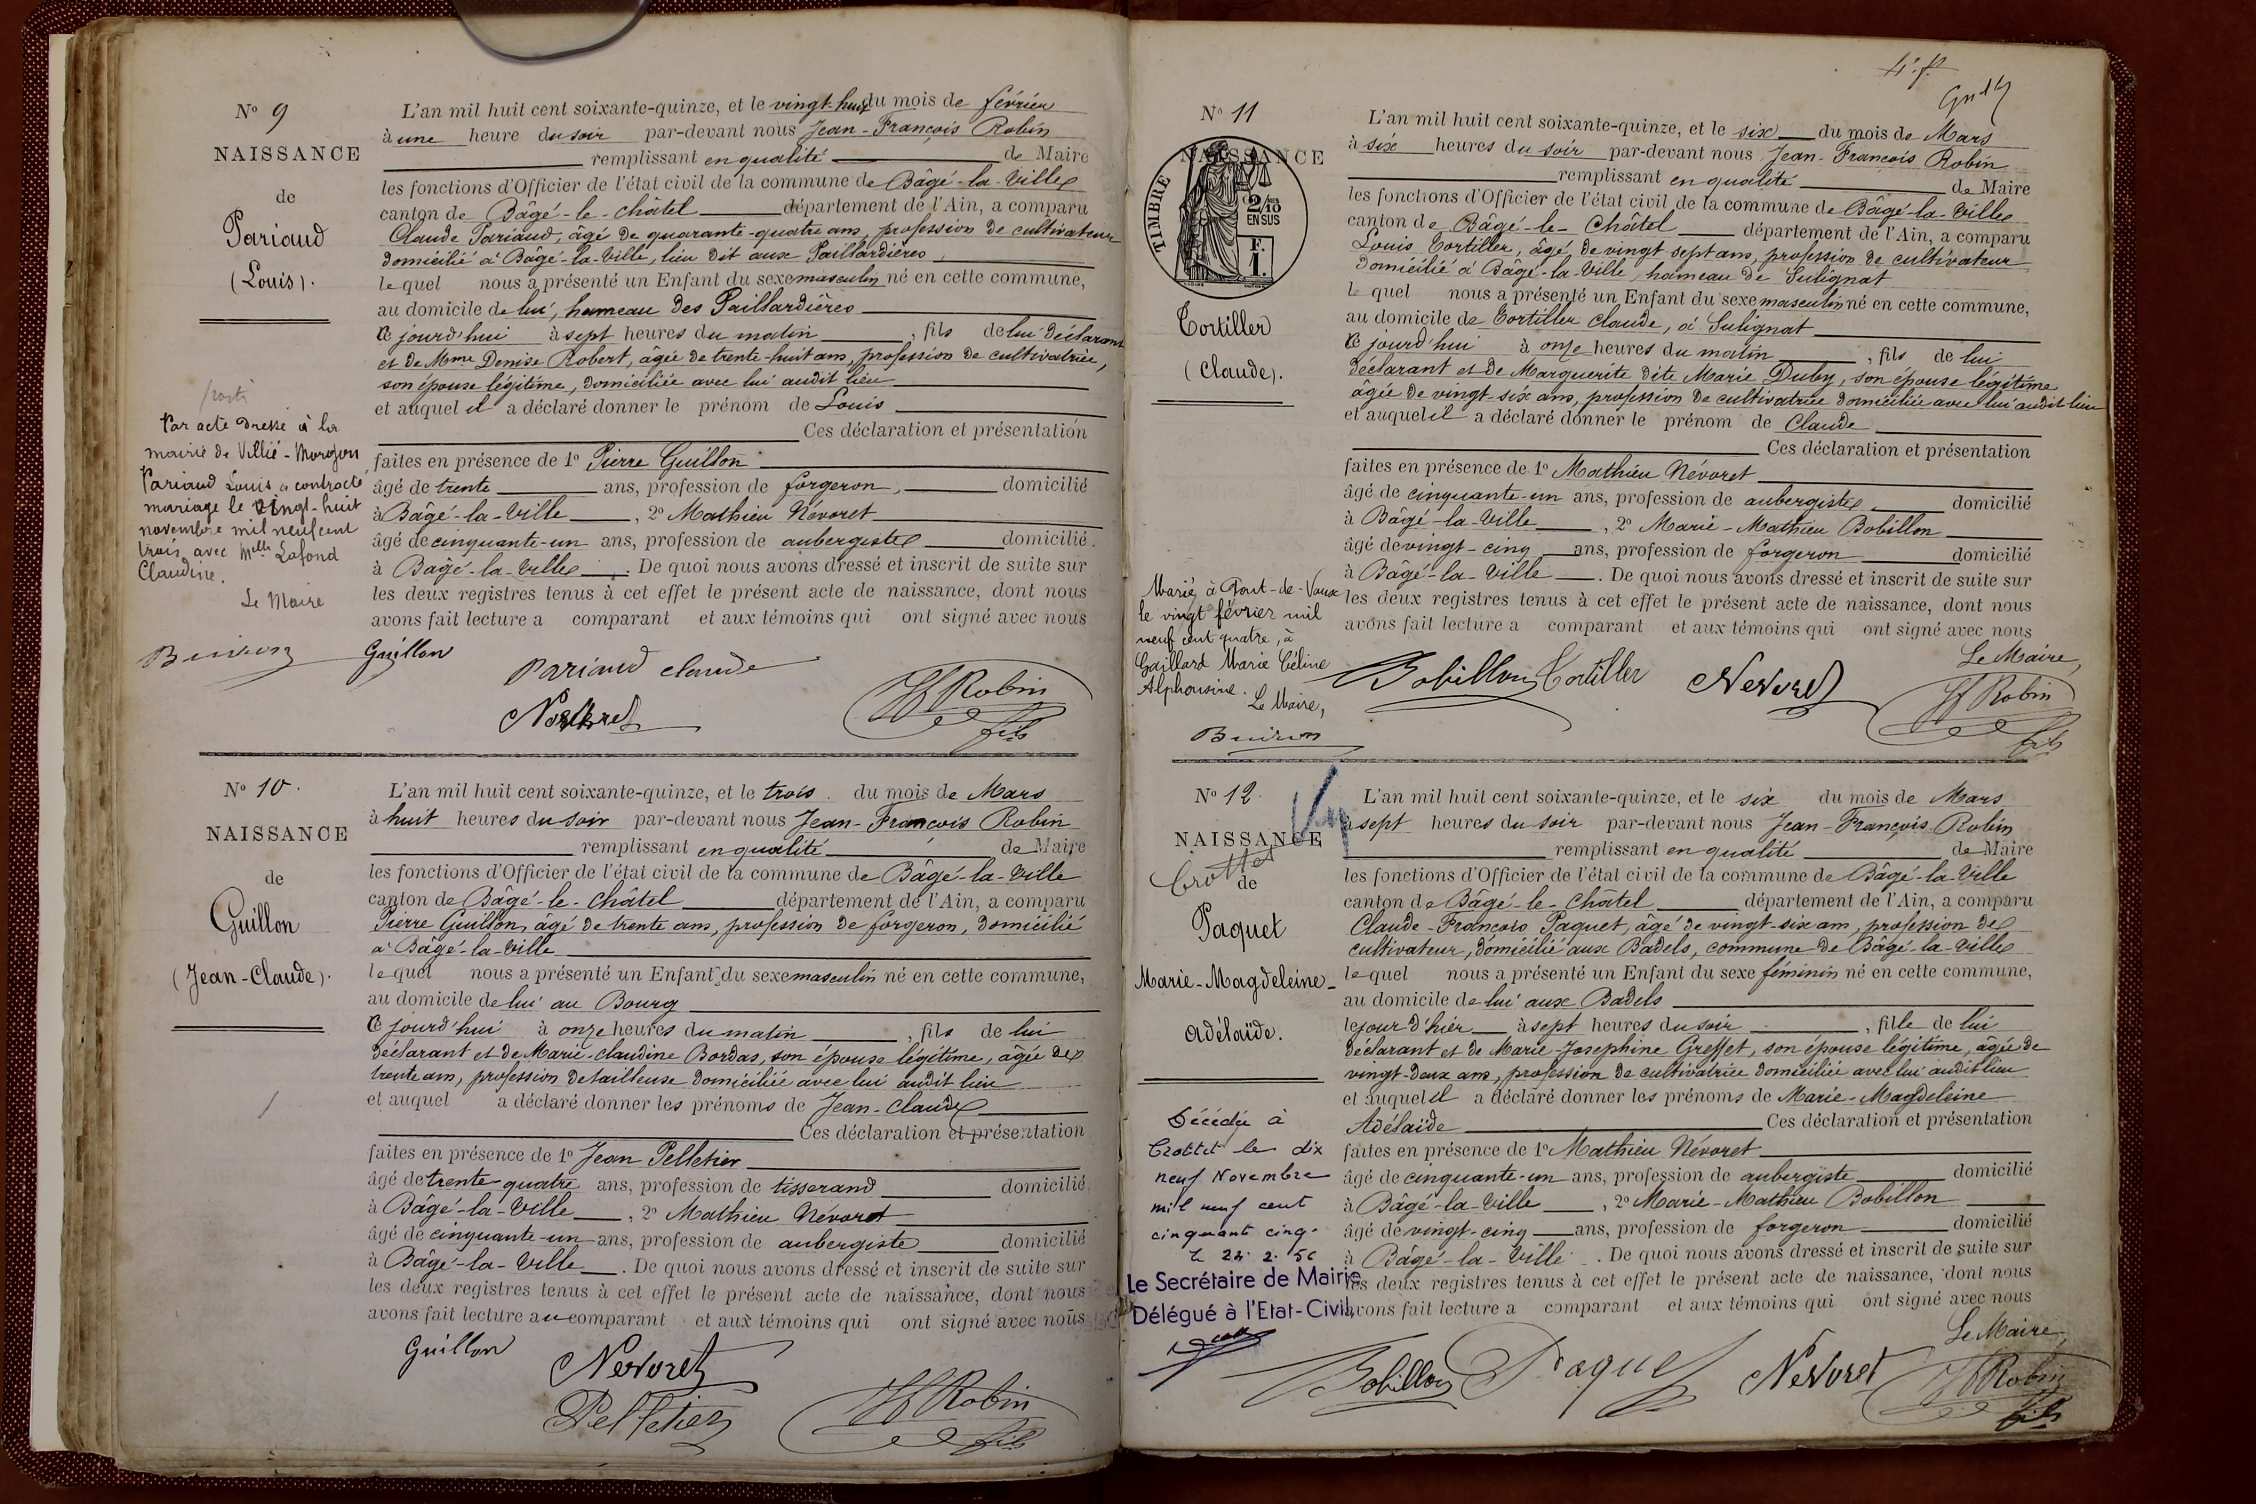 N° 9
NAISSANCE
de
Pariaud
(Louis).
L'an mil huit cent soixante-quinze, et le vingt-huit du mois de février
à une heure du soir par-devant nous Jean-François Robin
remplissant en qualité de Maire
les fonctions d'Officier de l'état civil de la commune de Bâgé-la-Ville
canton de Bâgé-le-Châtel département de l'Ain, a comparu
Claude Pariaud, âgé de quarante-quatre ans, profession de cultivateur
domicilié à Bâgé-la-Ville, lieu dit aux Paillardières,
lequel nous a présenté un Enfant du sexe masculin né en cette commune,
au domicile de lui, hameau des Paillardières
Ce jourd'hui à sept heures du matin, fils de lui déclarant
et de Mme Denise Robert, âgée de trente-huit ans, profession de cultivatrice,
son épouse légitime, domiciliée avec lui audit lieu
et auquel il a déclaré donner le prénom de Louis
Ces déclaration et présentation
faites en présence de 1° Pierre Guillon
âgé de trente ans, profession de forgeron, domicilié
à Bâgé-la-Ville, 2° Mathieu Névoret
âgé de cinquante-un ans, profession de aubergiste domicilié
à Bâgé-la-Ville. De quoi nous avons dressé et inscrit de suite sur
les deux registres tenus à cet effet le présent acte de naissance, dont nous
avons fait lecture a comparant et aux témoins qui ont signé avec nous
Par acte dressé à la
mairie de Villié-Morgon
Pariaud Louis a contracté
mariage le vingt-huit
novembre mil neuf cent
trois avec Melle Lafond
Claudine.
Le Maire
Buiron
Guillon
Pariaud Claude
Nevoret
JF Robin
fils
N° 10.
NAISSANCE
de
Guillon
(Jean-Claude).
L'an mil huit cent soixante-quinze, et le trois du mois de Mars
à huit heures du soir par-devant nous Jean-François Robin
remplissant en qualité de Maire
les fonctions d'Officier de l'état civil de la commune de Bâgé-la-Ville
canton de Bâgé-le-Châtel département de l'Ain, a comparu
Pierre Guillon, âgé de trente ans, profession de forgeron, domicilié
à Bâgé-la-Ville
lequel nous a présenté un Enfant du sexe masculin né en cette commune,
au domicile de lui au Bourg
Ce jourd'hui à onze heures du matin, fils de lui
déclarant et de Marie-Claudine Bordas, son épouse légitime, âgée de
trente ans, profession de tailleuse domiciliée avec lui audit lieu
et auquel a déclaré donner les prénoms de Jean-Claude
Ces déclaration et présentation
faites en présence de 1° Jean Pelletier
âgé de trente-quatre ans, profession de tisserand domicilié
à Bâgé-la-Ville, 2° Mathieu Névoret
âgé de cinquante-un ans, profession de aubergiste domicilié
à Bâgé-la-Ville. De quoi nous avons dressé et inscrit de suite sur
les deux registres tenus à cet effet le présent acte de naissance, dont nous
avons fait lecture au comparant et aux témoins qui ont signé avec nous
Guillon
Nevoret
Pelletier
JF Robin
fils
N° 11
NAISSANCE
TIMBRE
2/10
EN SUS
F.
1.
Tortiller
(Claude).
L'an mil huit cent soixante-quinze, et le six du mois de Mars
à six heures du soir par-devant nous Jean-François Robin
remplissant en qualité de Maire
les fonctions d'Officier de l'état civil de la commune de Bâgé-la-Ville
canton de Bâgé-le-Châtel département de l'Ain, a comparu
Louis Tortiller, âgé de vingt sept ans, profession de cultivateur
domicilié à Bâgé-la-Ville hameau de Sulignat
lequel nous a présenté un Enfant du sexe masculin né en cette commune,
au domicile de Tortiller Claude, à Sulignat
Ce jourd'hui à onze heures du matin, fils de lui
déclarant et de Marguerite dite Marie Duby, son épouse légitime
âgée de vingt-six ans, profession de cultivatrice domiciliée avec lui audit lieu
et auquel il a déclaré donner le prénom de Claude
Ces déclaration et présentation
faites en présence de 1° Mathieu Névoret
âgé de cinquante-un ans, profession de aubergiste domicilié
à Bâgé-la-Ville, 2° Marie-Mathieu Bobillon
âgé de vingt-cinq ans, profession de forgeron domicilié
à Bâgé-la-Ville. De quoi nous avons dressé et inscrit de suite sur
les deux registres tenus à cet effet le présent acte de naissance, dont nous
avons fait lecture a comparant et aux témoins qui ont signé avec nous
Marié à Pont-de-Vaux
le vingt février mil
neuf cent quatre, à
Gaillard Marie Céline
Alphonsine.
Le Maire,
Buiron
Le Maire,
Bobillon Tortiller Nevoret
JF Robin
fils
N° 12.
NAISSANCE
Crottet
de
Paquet
Marie-Magdeleine-
Adélaïde.
L'an mil huit cent soixante-quinze, et le six du mois de Mars
à sept heures du soir par-devant nous Jean-François Robin
remplissant en qualité de Maire
les fonctions d'Officier de l'état civil de la commune de Bâgé-la-Ville
canton de Bâgé-le-Châtel département de l'Ain, a comparu
Claude-François Paquet, âgé de vingt-six ans, profession de
cultivateur, domicilié aux Badels, commune de Bâgé-la-Ville
lequel nous a présenté un Enfant du sexe féminin né en cette commune,
au domicile de lui aux Badels
le jour d'hier à sept heures du soir, fille de lui
déclarant et de Marie-Josephine Greffet, son épouse légitime, âgée de
vingt-deux ans, profession de cultivatrice domiciliée avec lui audit lieu
et auquel il a déclaré donner les prénoms de Marie-Magdeleine
Adélaïde Ces déclaration et présentation
faites en présence de 1° Mathieu Névoret
âgé de cinquante-un ans, profession de aubergiste domicilié
à Bâgé-la-Ville, 2° Marie-Mathieu Bobillon
âgé de vingt-cinq ans, profession de forgeron domicilié
à Bâgé-la-Ville. De quoi nous avons dressé et inscrit de suite sur
les deux registres tenus à cet effet le présent acte de naissance, dont nous
avons fait lecture a comparant et aux témoins qui ont signé avec nous
Décédée à
Crottet le dix
neuf Novembre
mil neuf cent
cinquante cinq.
Le Secrétaire de Mairie
Délégué à l'Etat-Civil,
Le Maire,
Bobillon Paquet Nevoret
JF Robin
fils